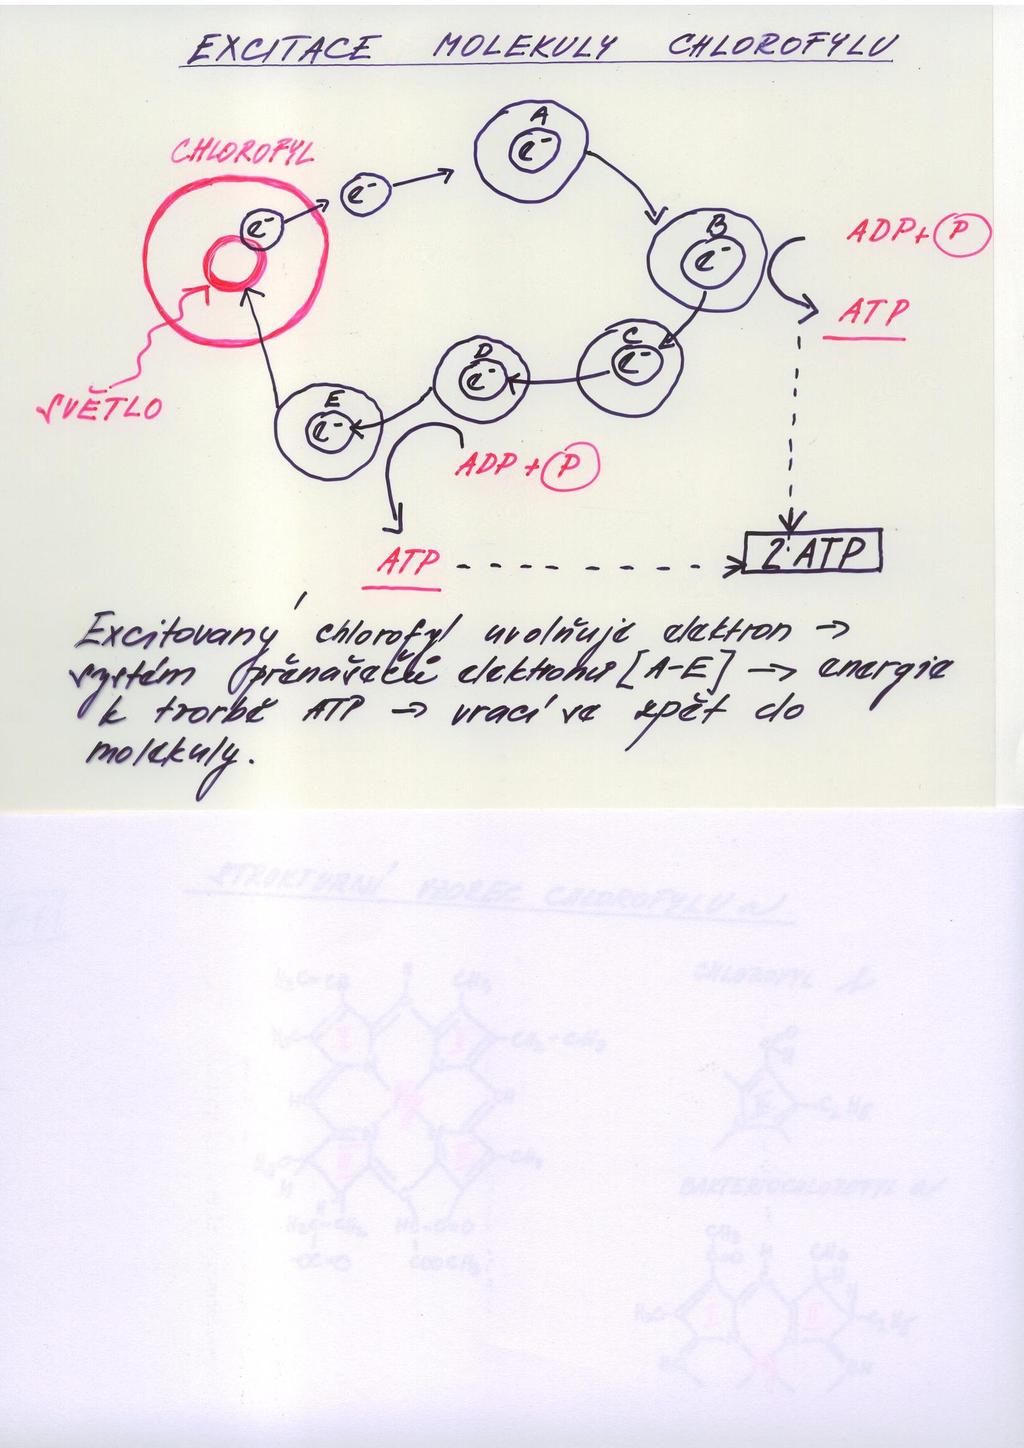 EXCITACE MOLEKULY CHLOROFYLU
CHLOROFYL
A
e⁻
e⁻
e⁻
B
e⁻
ADP+P
ATP
SVĚTLO
C
e⁻
D
e⁻
E
e⁻
ADP+P
ATP
2 ATP
Excitovaný chlorofyl uvolňuje elektron →
systém přenašečů elektronů [A-E] → energie
k tvorbě ATP → vrací se zpět do
molekuly.
STRUKTURNÍ VZOREC CHLOROFYLU a
CHLOROFYL b
BAKTERIOCHLOROFYL a